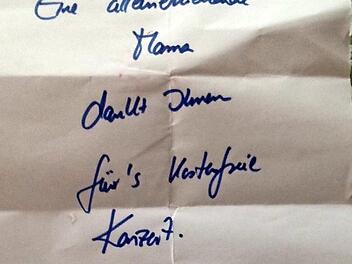 Eine alleinerziehende
Mama
dankt Ihnen
für's Kostenfreie
Konzert.